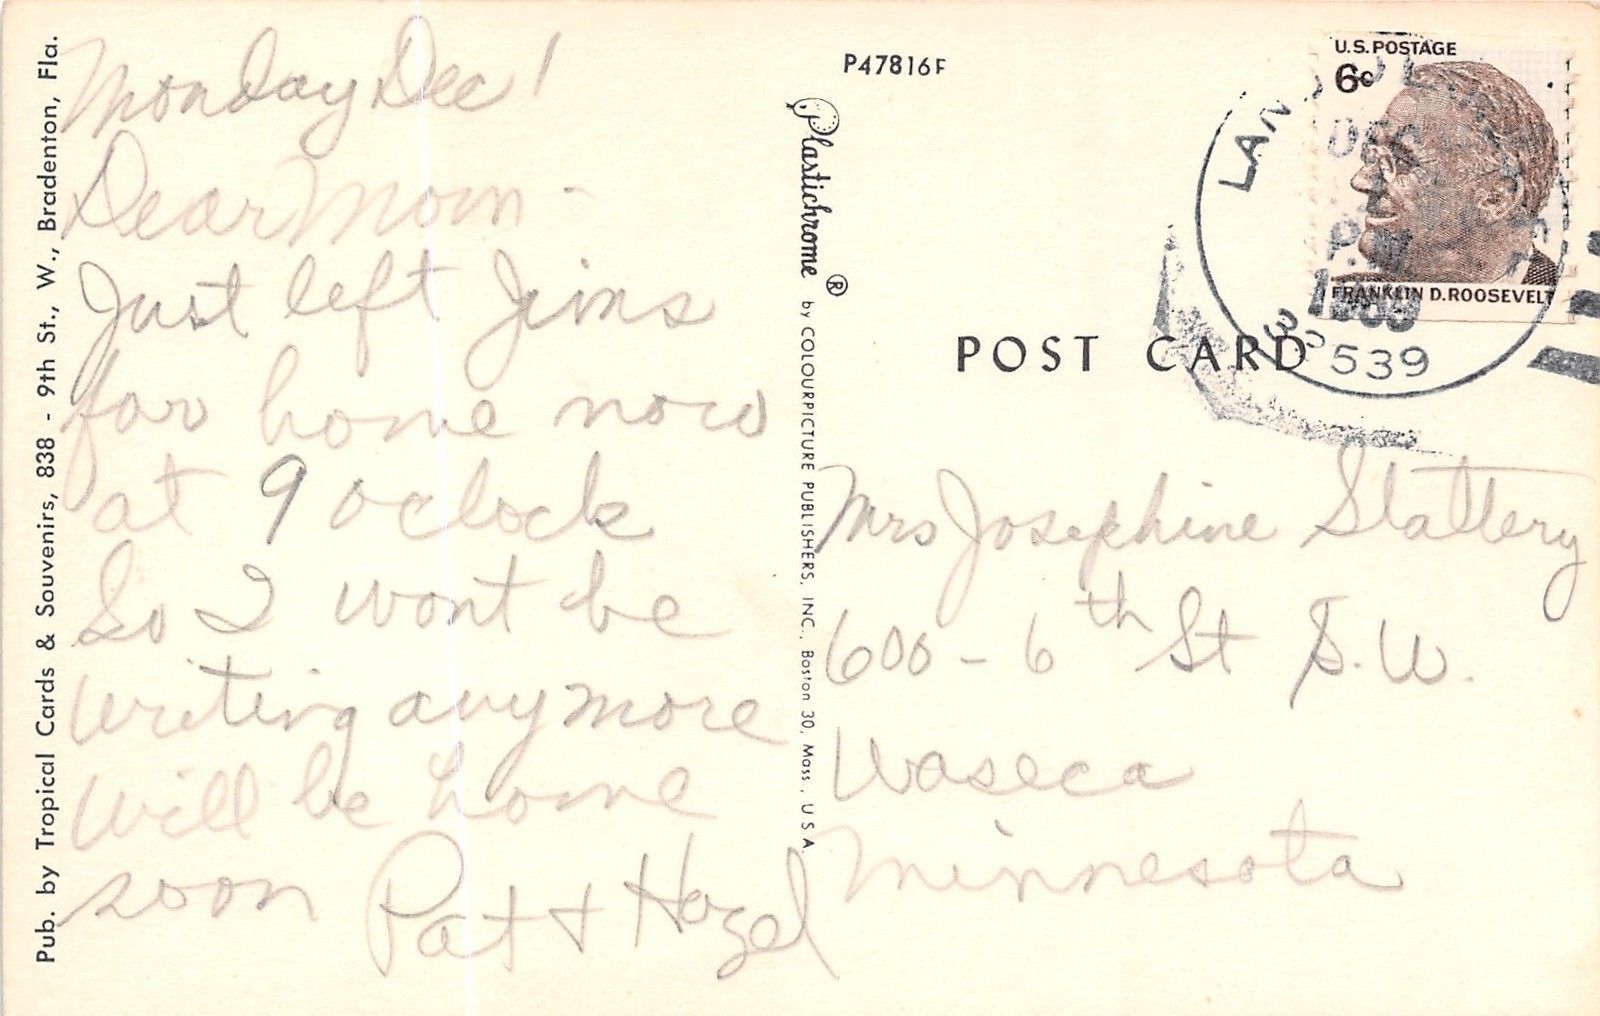 Pub. by Tropical Cards & Souvenirs, 838 - 9th St., W., Bradenton, Fla.
Monday Dec 1
Dear Mom -
Just left Jims
for home now
at 9 oclock
So I wont be
writing anymore
will be home
soon Pat + Hazel
P47816F
Plastichrome ® by COLOURPICTURE PUBLISHERS, INC., Boston 30, Mass., U S A.
U.S. POSTAGE
6c
FRANKLIN D. ROOSEVELT
DEC
1
P.M
1969
33539
POST CARD
Mrs Josephine Slattery
600 - 6th St S.W.
Waseca
Minnesota